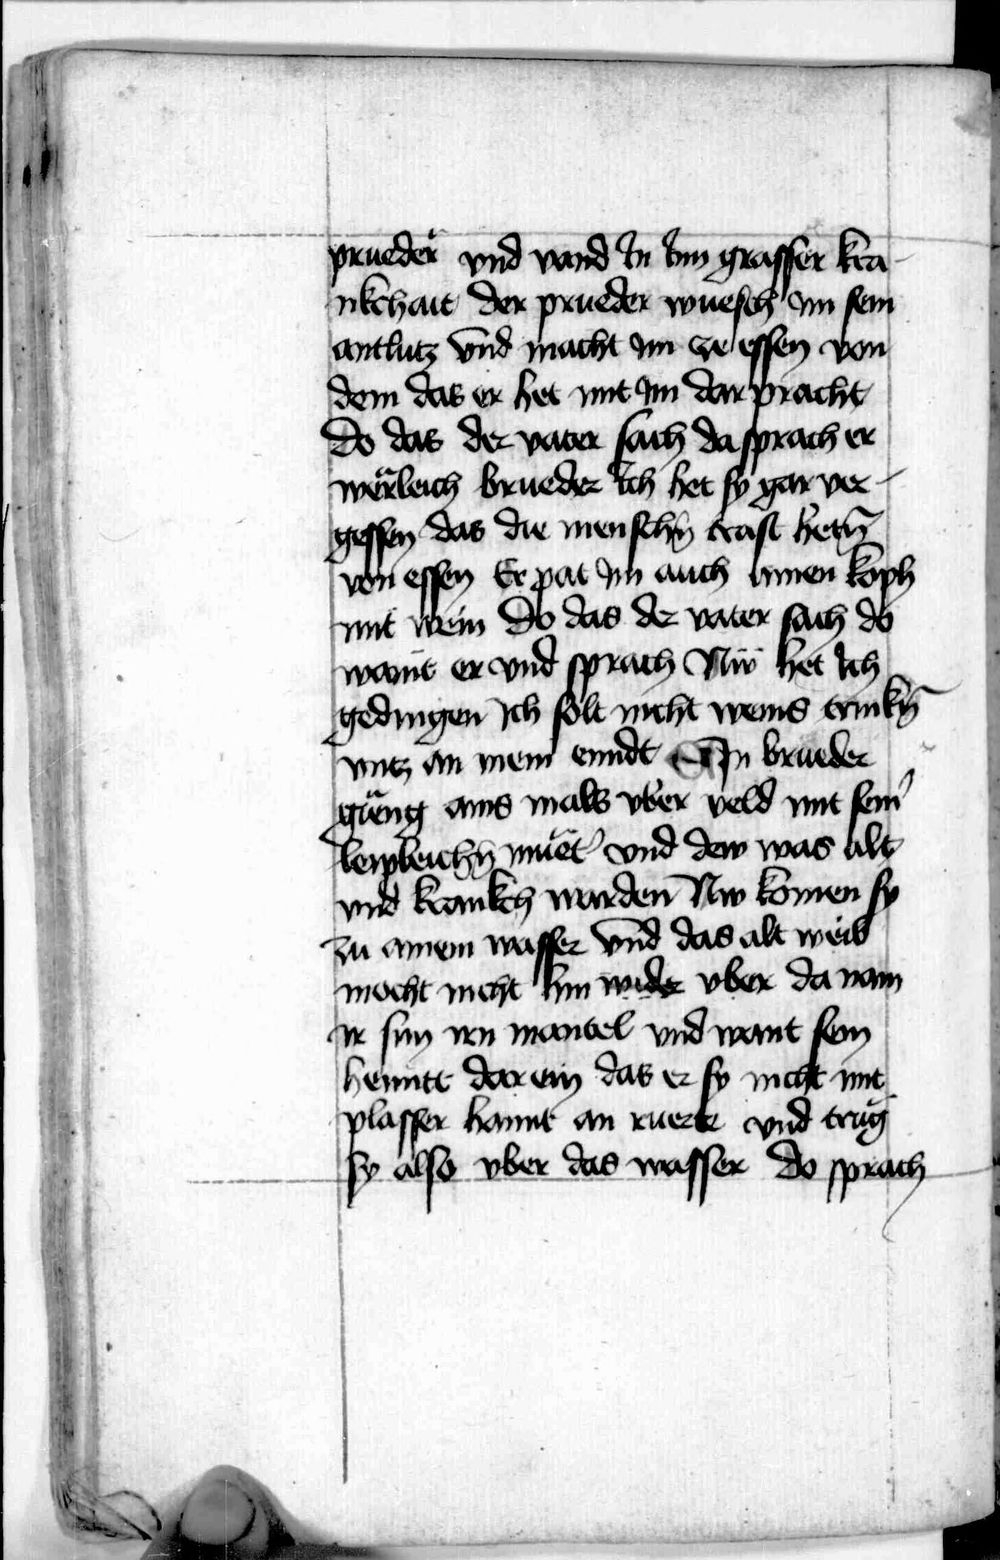 prueder vnd vand In Inn grasser kra-
nkchait der prueder wuesch im sein
antlutz vnd macht im ze essen von
dem das er het mit im dar pracht
Do das der vater sach da sprach er
werleich brueder Ich het sy gar ver-
gessen das die menschn̄ trast hetn̄
von essen Er pat im auch ainen koph
mit wein Do das der vater sach do
waint er vnd sprach Nw het Ich
gedingen ich solt nicht weins trinkn̄
vntz an mein enndt Ein brueder
gäng ains mals vber veld mit sein̄
leipleichn̄ muet̄ vnd dew was alt
vnd krankch warden Nw komen sy
zu ainem wasser vnd das alt weib
mocht nicht hin wider vber da nam
ir sun irn mantel vnd want sein
henntt dar ein das er sy nicht mit
plasser hannt an ruerte vnd trug
sy also vber das wasser Do sprach